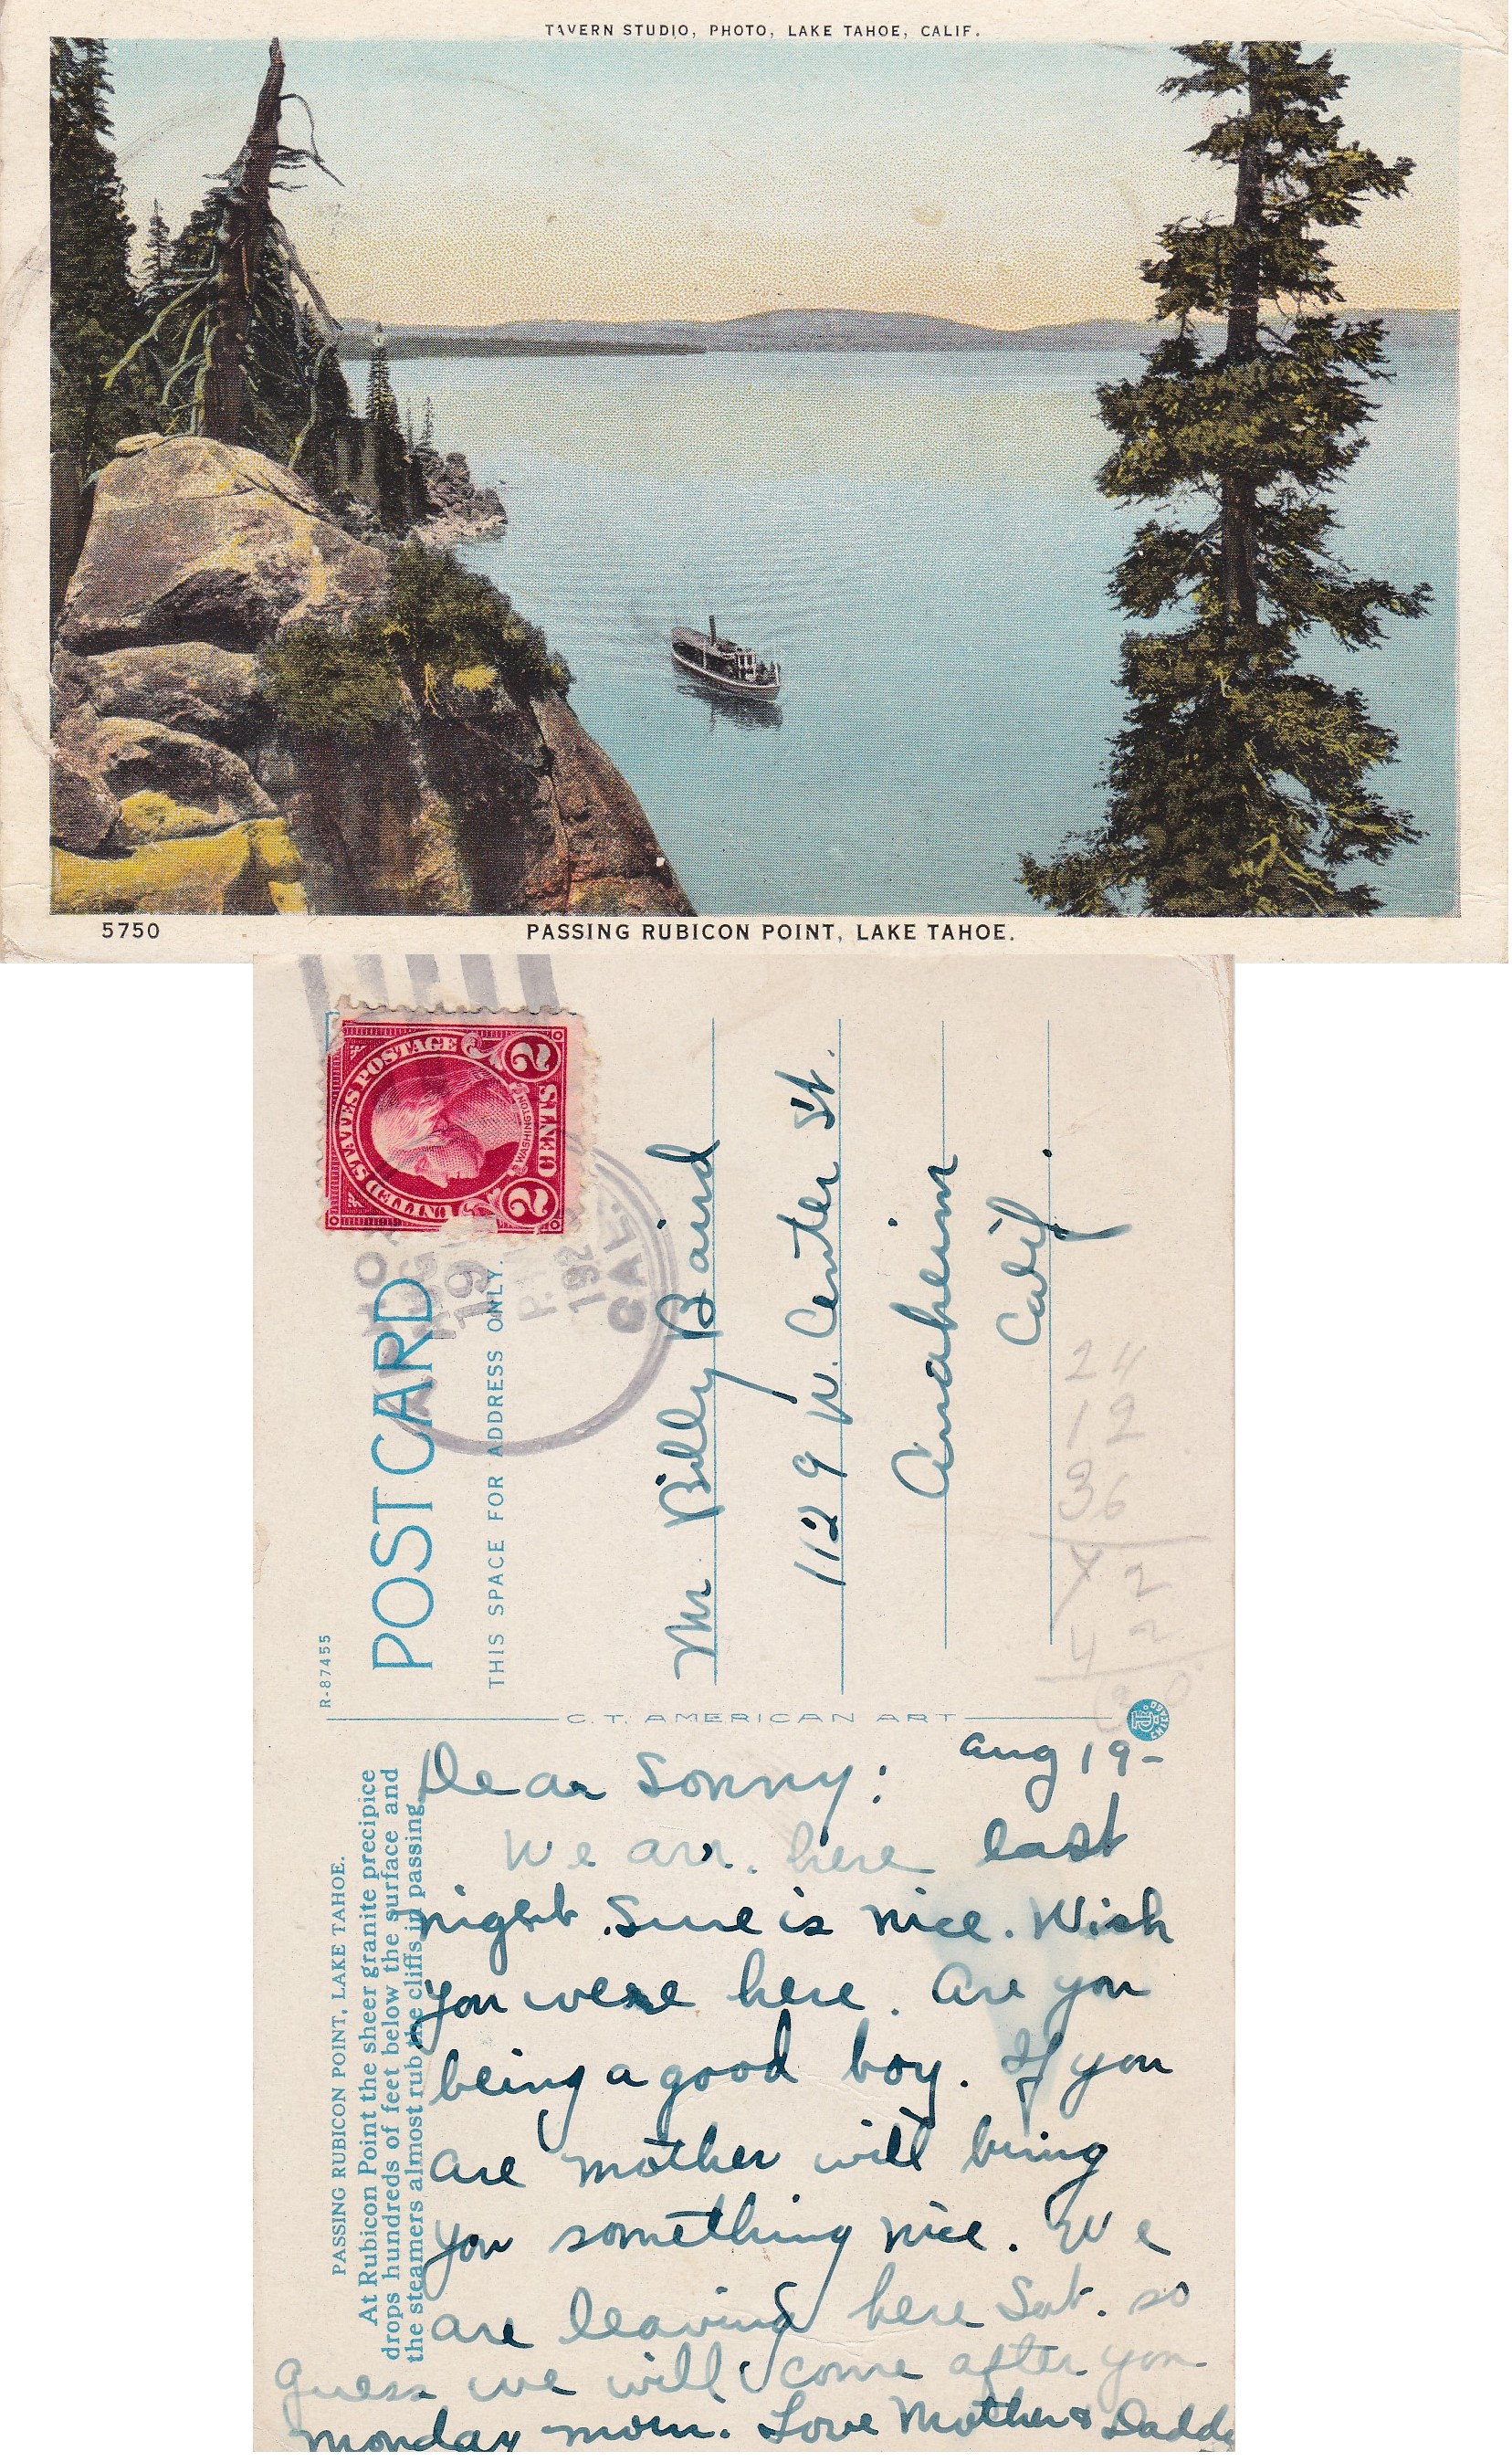 TAVERN STUDIO, PHOTO, LAKE TAHOE, CALIF.
5750
PASSING RUBICON POINT, LAKE TAHOE.
UNITED STATES POSTAGE
WASHINGTON
2 CENTS 2
AUG
19
192
CAL.
R-87455
POST CARD
THIS SPACE FOR ADDRESS ONLY.
Mr Billy Baird
1129 W. Center St.
Anaheim
Calif.
24
12
36
C.T. AMERICAN ART
CHICAGO
PASSING RUBICON POINT, LAKE TAHOE.
At Rubicon Point the sheer granite precipice
drops hundreds of feet below the surface and
the steamers almost rub the cliffs in passing.
Aug 19-
Dear Sonny:
We arr. here last
night. Sure is nice. Wish
you were here. Are you
being a good boy. If you
are mother will bring
you something nice. We
are leaving here Sat. so
guess we will come after you
monday morn. Love Mother & Daddy